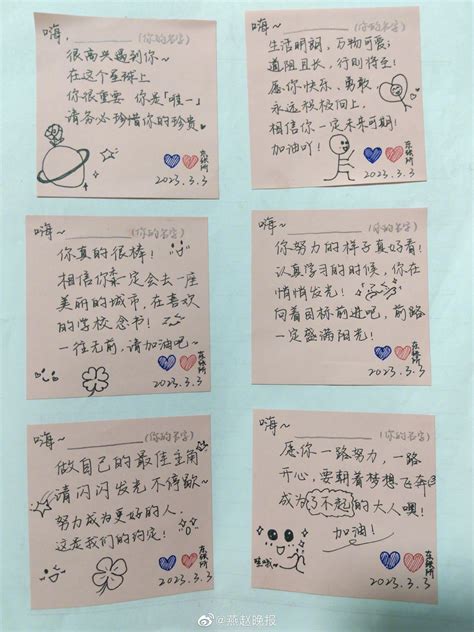 嗨，________(你的名字)
很高兴遇到你~
在这个星球上
你很重要 你是「唯一」
请务必珍惜你的珍贵♥
2023.3.3
嗨~ ________(你的名字)
生活明朗，万物可爱；
道阻且长，行则将至！
愿你快乐、勇敢，
永远积极向上，
相信你一定未来可期！
加油吖！
2023.3.3
嗨~ ________(你的名字)
你真的很棒！
相信你一定会去一座
美丽的城市，在喜欢
的学校念书！
一往无前，请加油吧~
2023.3.3
嗨~ ________(你的名字)
你努力的样子真好看！
认真学习的时候，你在
悄悄发光！
向着目标前进吧，前路
一定盛满阳光！
2023.3.3
嗨~ ________(你的名字)
做自己的最佳主角
请闪闪发光不停歇~
努力成为更好的人
这是我们的约定！
2023.3.3
嗨~ ________(你的名字)
愿你一路努力，一路
开心，要朝着梦想飞奔
成为了不起的大人噢！
加油！
哇哦~
2023.3.3
@燕赵晚报